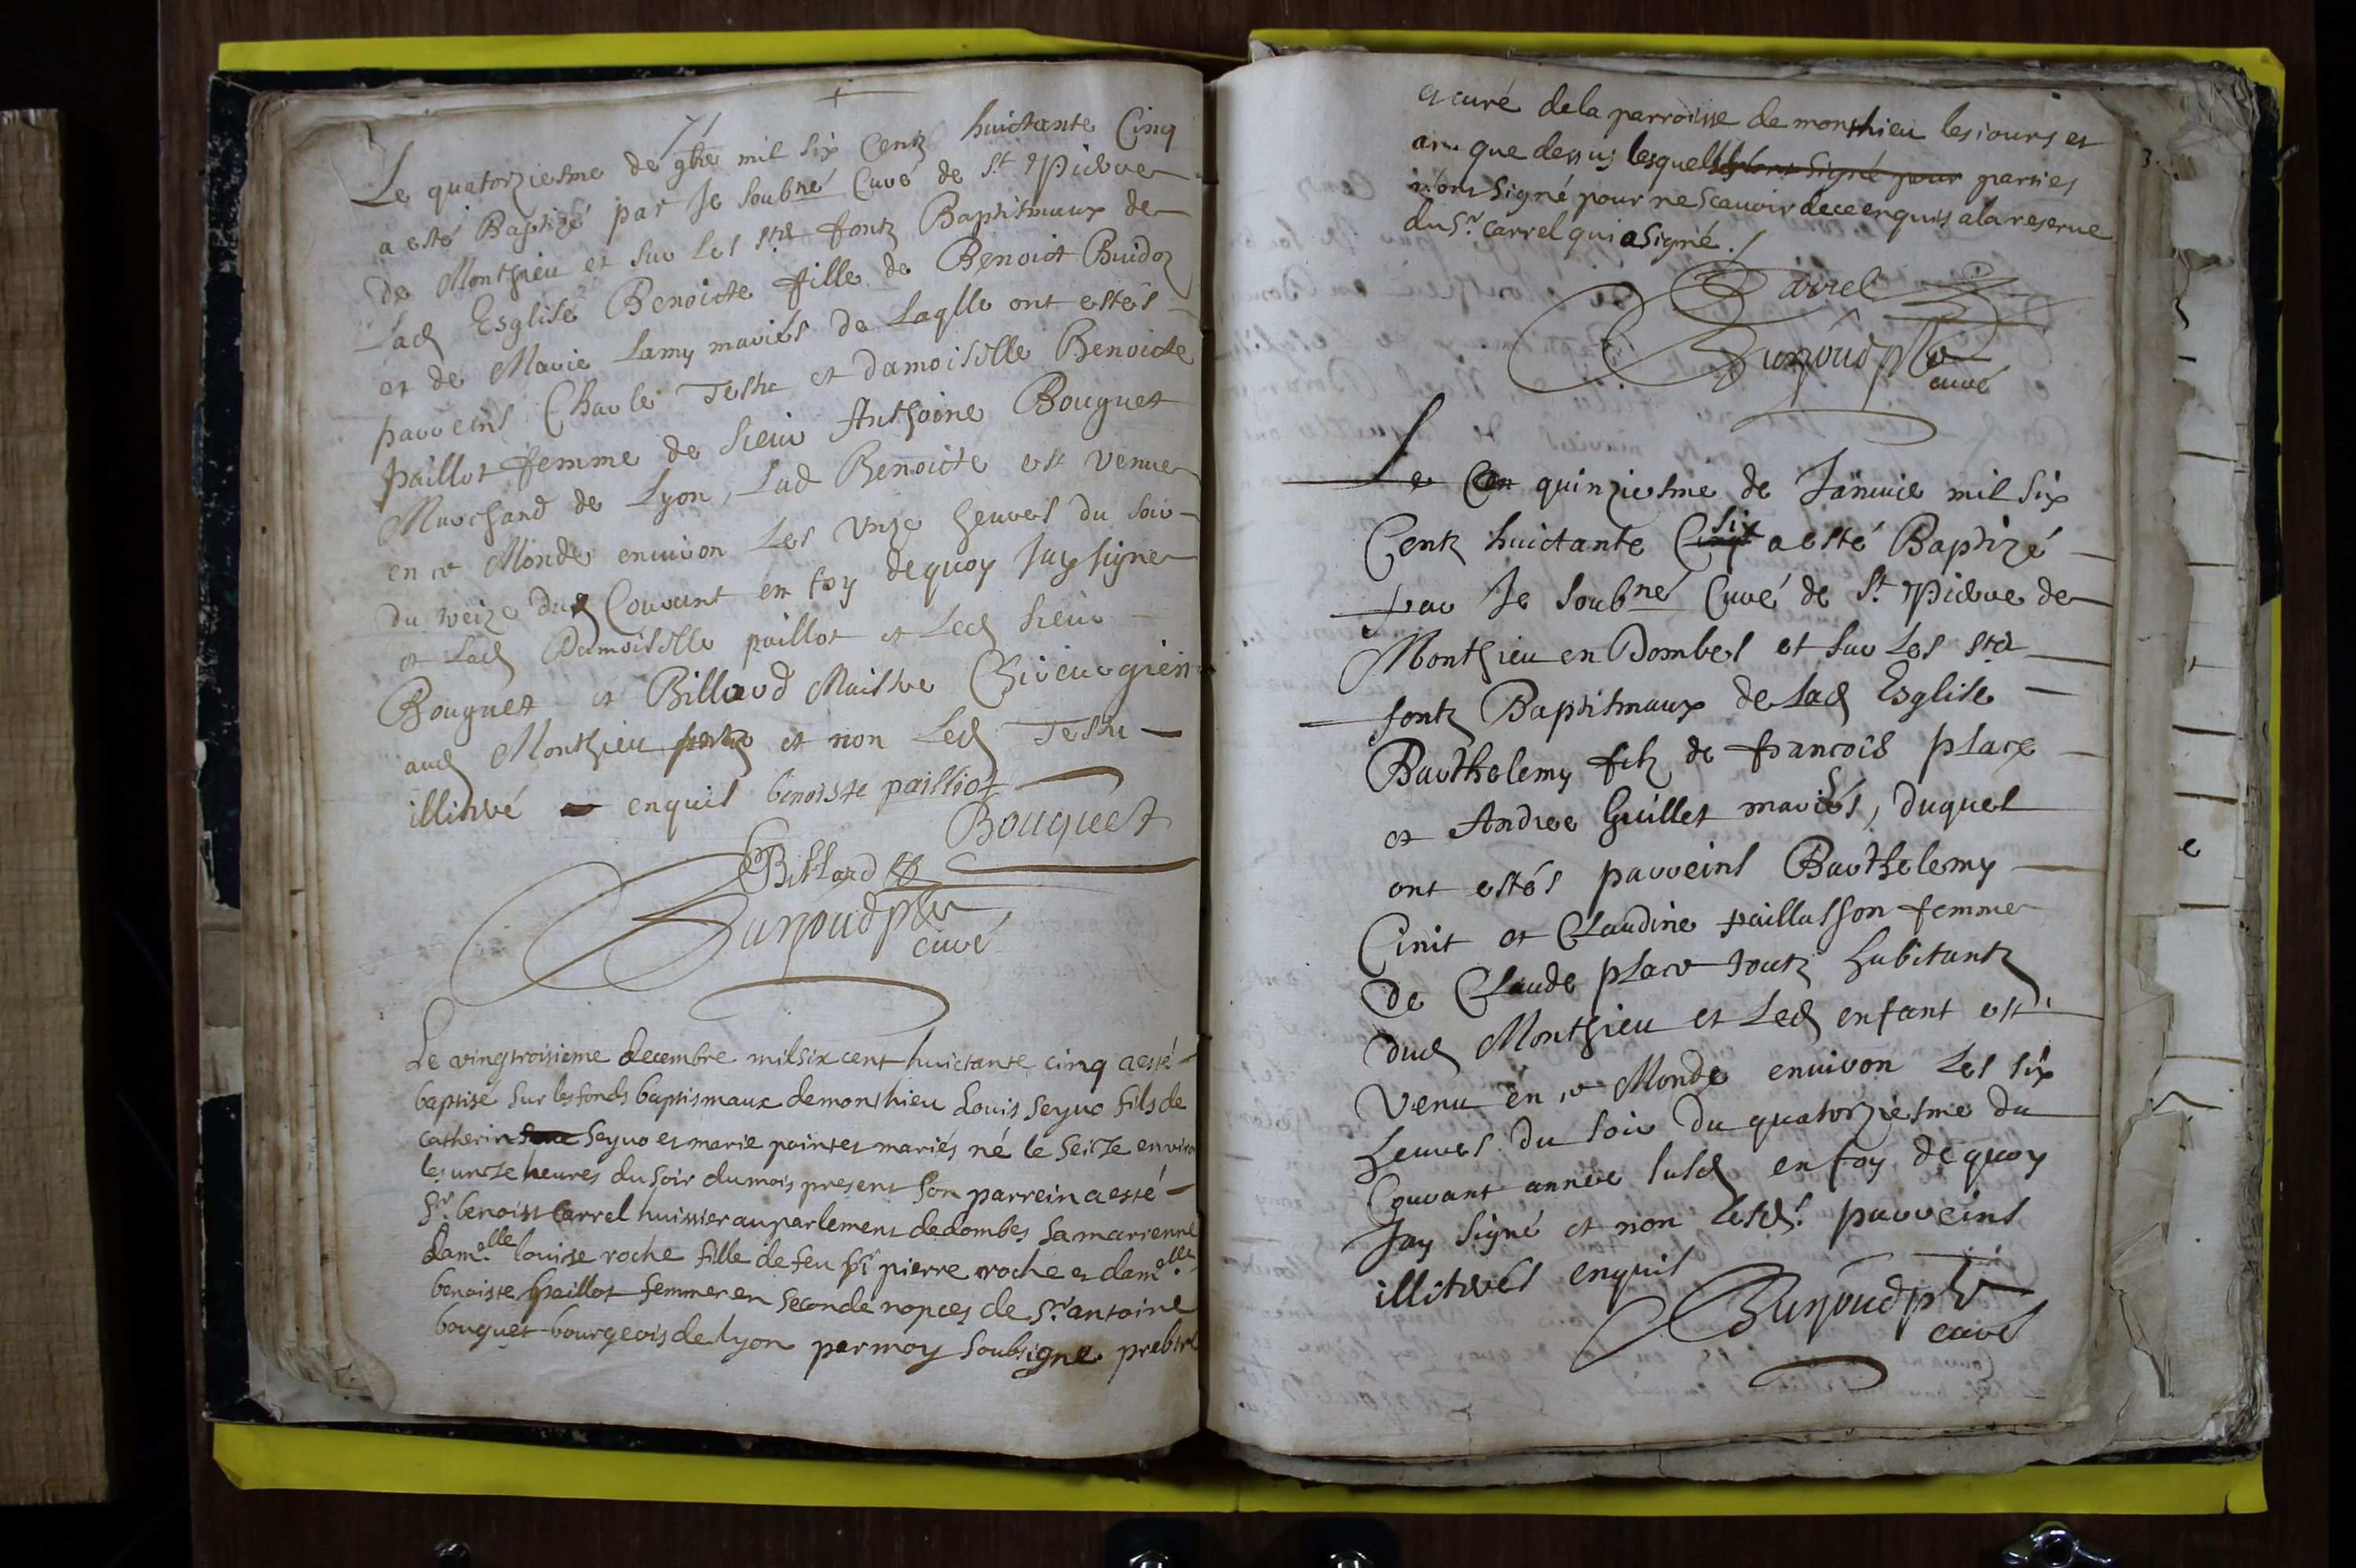 Le quatorziesme de 9bre mil six Centz huictante Cinq
a esté Baptizé par Je soubné Curé de St Pierre
de Monthieu et sur les stes fontz Baptismaux de
Lad Esglise Benoicte fille de Benoict Buidoz
et de Marie Lamy mariés de Laqlle ont estés
parreins Charle Teste et damoiselle Benoicte
paillot femme de sieur Anthoine Bouguet
Marchand de Lyon, Lad Benoicte est venue
en ce Monde environ Les unze heures du soir
du treize dud Courant en foy dequoy Jay signe
et Lad Damoiselle paillot et Led sieur
Bouguet et Billard Maistre Chirurgien
aud Monthieu et non Led Teste
illitré enquis benoiste pailliot
Bouguet
Billard
Buynoud ptre
curé
Le vingtroisieme decembre mil six cent huictante cinq a esté
baptisé sur les fonds baptismaux de monthieu Louis seyuo fils de
catherin seyuo et marie pointet mariés né le seize environ
les uncze heures du soir du mois present son parrein a esté
Sr. benoist Carrel huissier au parlement de dombes sa marienne
dam.elle louise roche fille de feu sr pierre roche et dam.elle
benoiste paillot femme en seconde nopces de Sr. antoine
bouguet bourgeois de lyon par moy soubsigne prebtre
et curé de la parroisse de monthieu les iours et
an que dessus lesquelles parties
n'ont signé pour ne scauoir de ce enquis a la reserue
du Sr. carrel qui a signé./
Carrel
Buynoud ptre
curé
Le quinziesme de Januie mil six
Centz huictante six a esté Baptizé
par Je soubné Curé de St. Pierre de
Monthieu en Dombes et sur Les stes
fontz Baptismaux de Lad Esglise
Barthelemy filz de francois place
et Andree Guillet mariés, duquel
ont estés parreins Barthelemy
Cinit et Claudine paillasson femme
de Claude place toutz habitantz
dud Monthieu et Led enfant est
Venu en ce Monde environ Les six
heures du soir du quatorziesme du
Courant annee susd en foy de quoy
Jay signé et non lesd. parreins
illitrés enquis
Buynoud ptre
curé